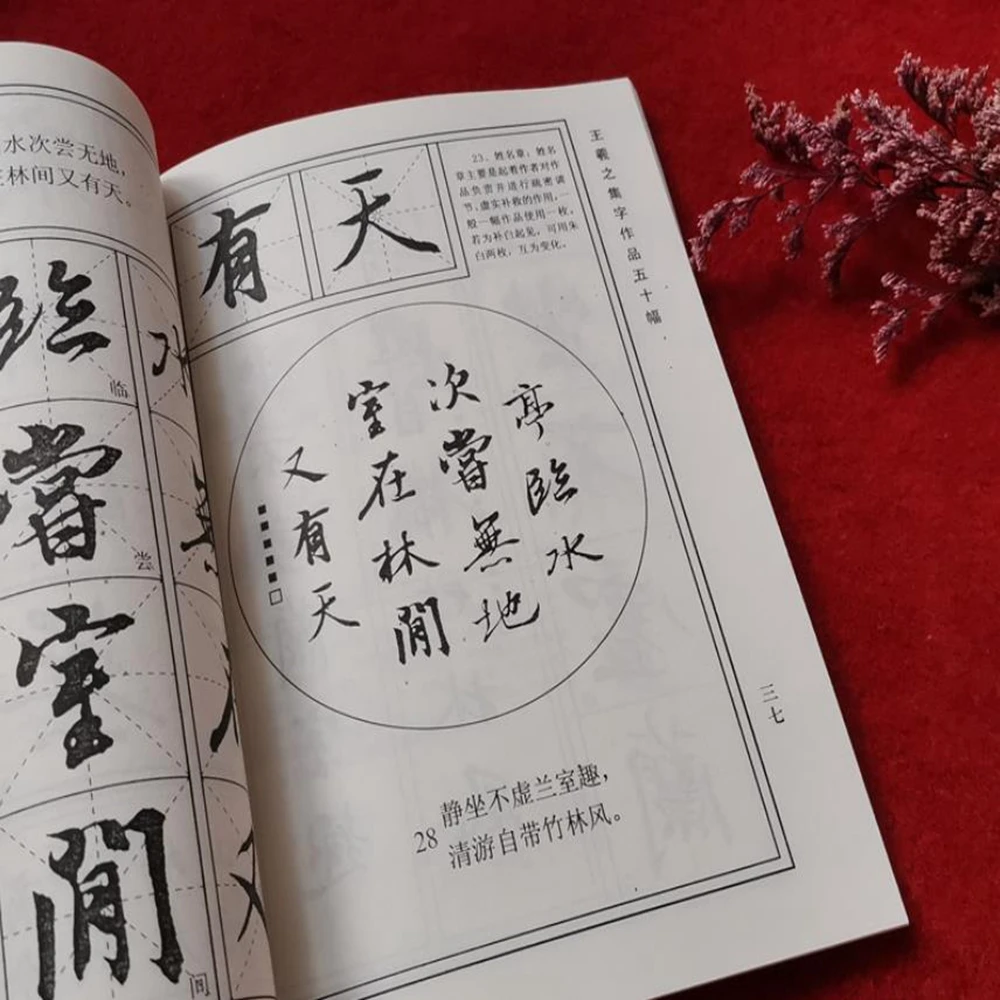 水次尝无地，
林间又有天。
臨
临
嘗
尝
室
間
间
水
無
有
天
23、姓名章：姓名
章主要是起着作者对作
品负责并进行疏密调
节、虚实补救的作用，一
般一幅作品使用一枚，
若为补白起见，可用朱
白两枚，互为变化。
王羲之集字作品五十幅
亭臨水
次嘗無地
室在林間
又有天
三七
28
静坐不虚兰室趣，
清游自带竹林风。